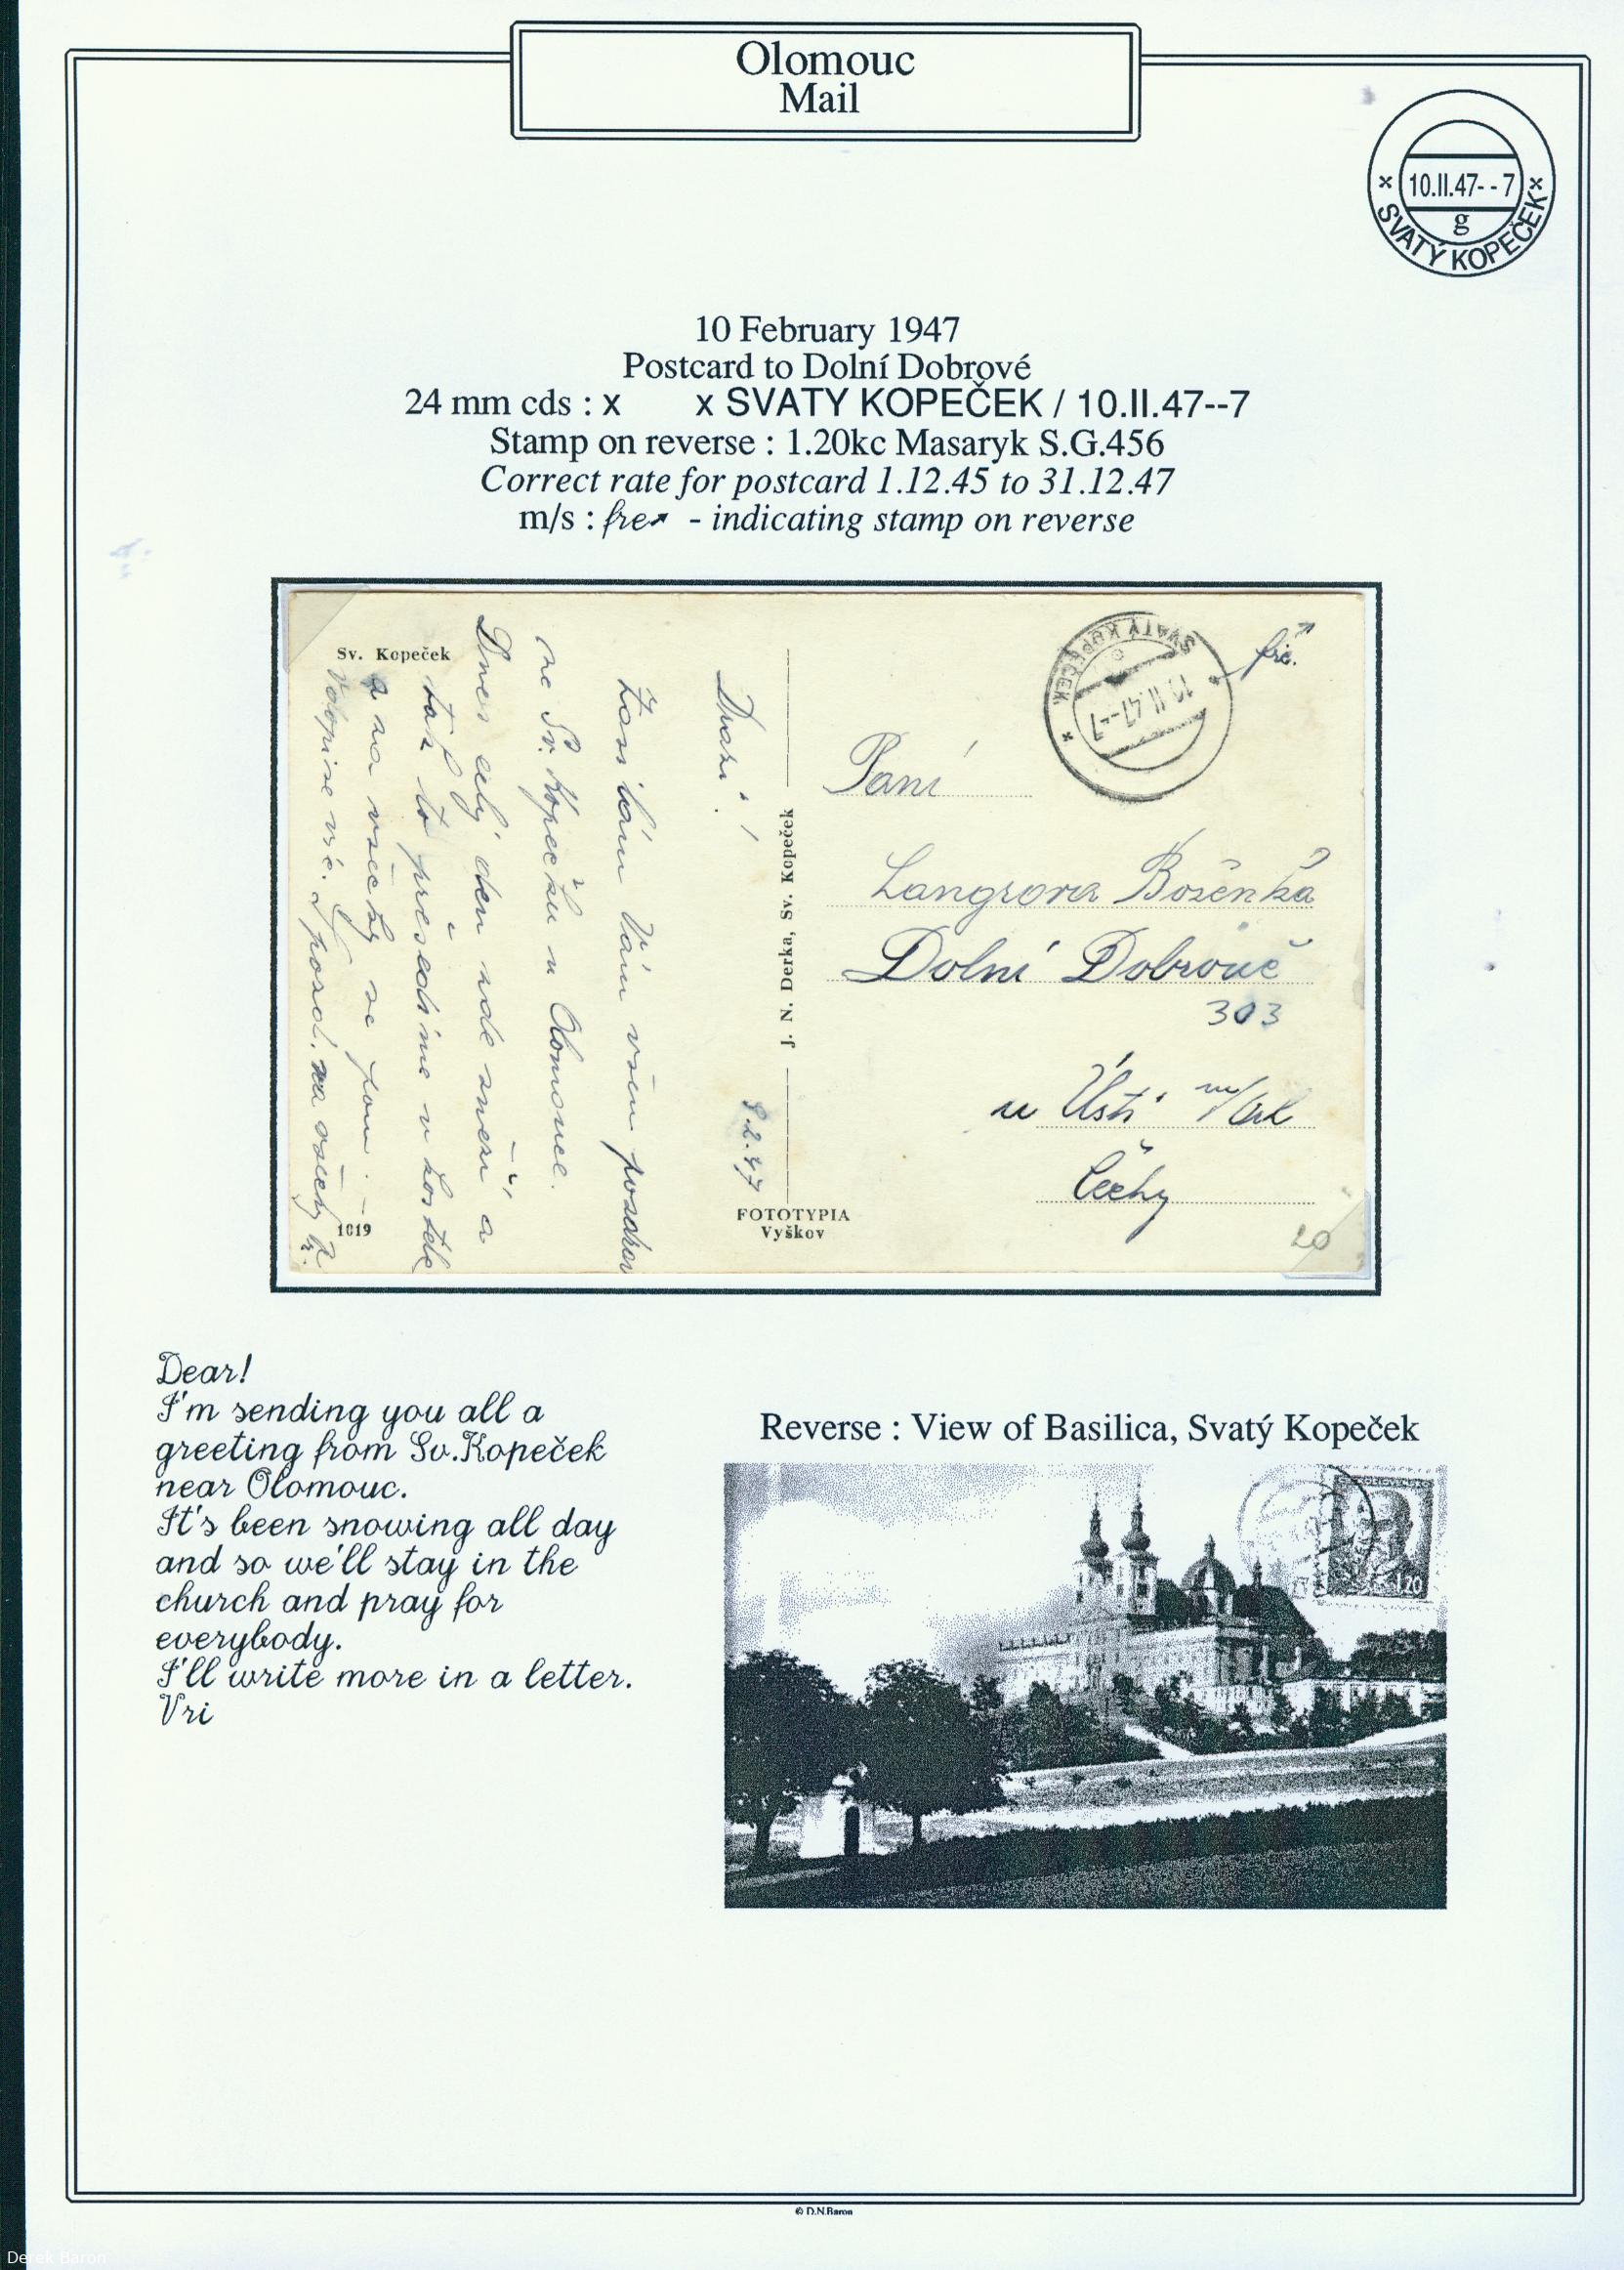 Olomouc
Mail
10.II.47--7
g
x SVATÝ KOPEČEK x
10 February 1947
Postcard to Dolní Dobrové
24 mm cds : x x SVATY KOPEČEK / 10.II.47--7
Stamp on reverse : 1.20kc Masaryk S.G.456
Correct rate for postcard 1.12.45 to 31.12.47
m/s : fre↗ - indicating stamp on reverse
Sv. Kopeček
Drazí!
8.2.47
Zasílám Vám všem pozdrav
ze Sv. Kopečku u Olomouce.
Dnes celý den zde sněží a
tak to předsedíme v kostele
a za všecky se
J. N. Derka, Sv. Kopeček
FOTOTYPIA
Vyškov
1019
SVATÝ KOPEČEK
10.II.47--7
frc. ↗
Paní
Langrova Boženka
Dolní Dobrouč
303
u Ústí n/Orl
Čechy
20
Dear!
I'm sending you all a
greeting from Sv.Kopeček
near Olomouc.
It's been snowing all day
and so we'll stay in the
church and pray for
everybody.
I'll write more in a letter.
Vri
Reverse : View of Basilica, Svatý Kopeček
1.20
© D.N.Baron
Derek Baron